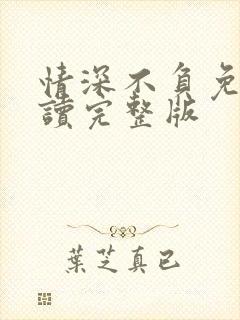 情深不負免
讀完整版
葉芝真已